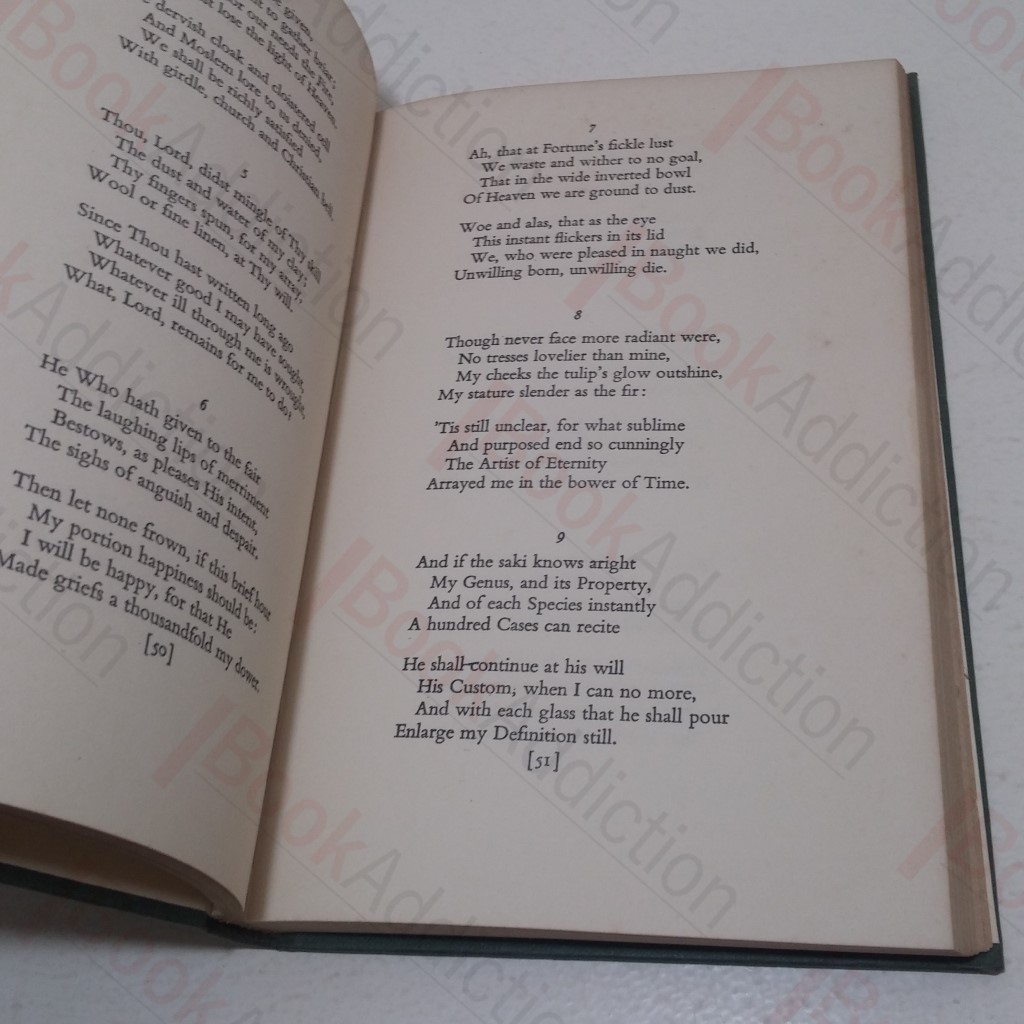 given,
to gather briar:
for our needs the Fire,
lose the light of Heaven.
dervish cloak and cloistered cell
And Moslem lore to us denied,
We shall be richly satisfied
With girdle, church and Christian bell.
5
Thou, Lord, didst mingle of Thy skill
The dust and water of my clay;
Thy fingers spun, for my array,
Wool or fine linen, at Thy will.
Since Thou hast written long ago
Whatever good I may have sought,
Whatever ill through me is wrought,
What, Lord, remains for me to do?
6
He Who hath given to the fair
The laughing lips of merriment
Bestows, as pleases His intent,
The sighs of anguish and despair.
Then let none frown, if this brief hour
My portion happiness should be:
I will be happy, for that He
Made griefs a thousandfold my dower.
[50]
7
Ah, that at Fortune's fickle lust
We waste and wither to no goal,
That in the wide inverted bowl
Of Heaven we are ground to dust.
Woe and alas, that as the eye
This instant flickers in its lid
We, who were pleased in naught we did,
Unwilling born, unwilling die.
8
Though never face more radiant were,
No tresses lovelier than mine,
My cheeks the tulip's glow outshine,
My stature slender as the fir:
'Tis still unclear, for what sublime
And purposed end so cunningly
The Artist of Eternity
Arrayed me in the bower of Time.
9
And if the saki knows aright
My Genus, and its Property,
And of each Species instantly
A hundred Cases can recite
He shall continue at his will
His Custom, when I can no more,
And with each glass that he shall pour
Enlarge my Definition still.
[51]
BookAddiction